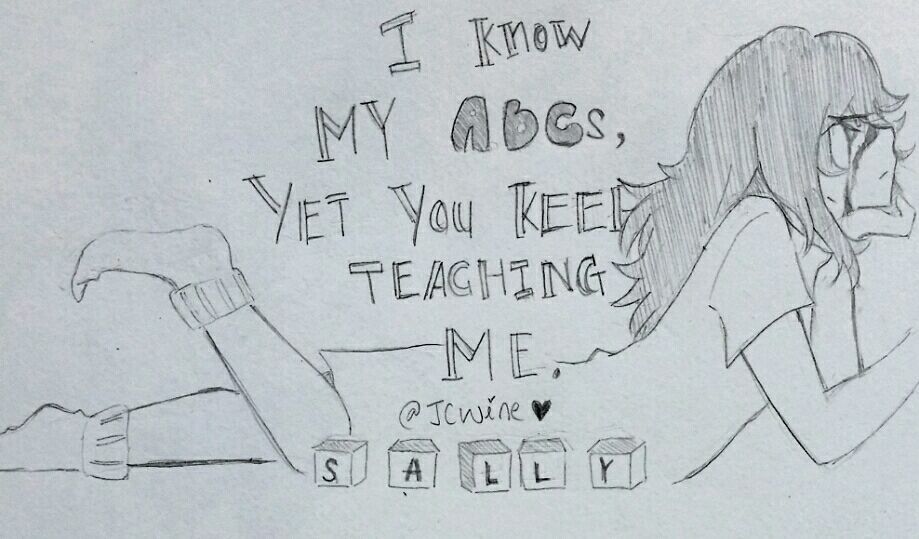 I KNOW
MY ABCs,
YET YOU KEEP
TEACHING
ME.
@JCWine ♥
S A L L Y